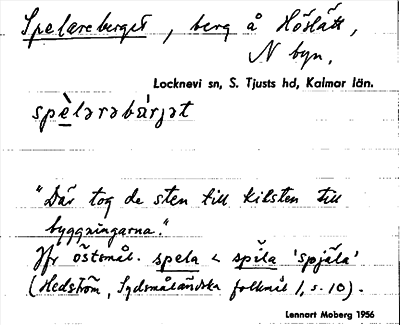 Spelareberget, berg å Höslätt,
N byn.
Locknevi sn, S. Tjusts hd, Kalmar län.
spè̱lərəbár̨jət
"Där tog de sten till kilsten till
byggningarna."
Jfr östsmål. spela < spĭla 'spjäla'
(Hedström, Sydsmåländska folkmål 1, s. 10).
Lennart Moberg 1956